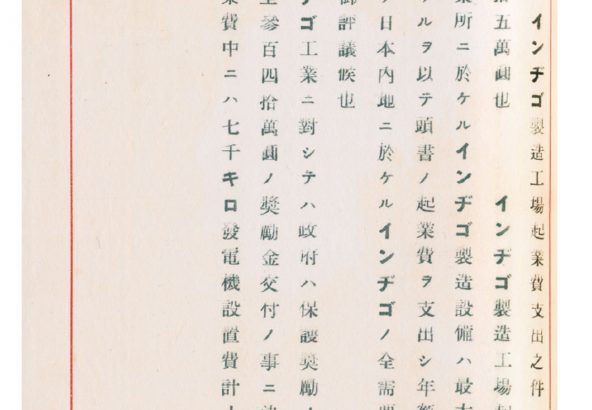 インヂゴ製造工場起業費支出之件
五萬圓也　インヂゴ製造工場起
業所ニ於ケルインヂゴ製造設備ハ最大
ルヲ以テ頭書ノ起業費ヲ支出シ年額
日本内地ニ於ケルインヂゴノ全需要
御評議候也
ゴ工業ニ對シテハ政府ハ保護奬勵ノ
參百四拾萬圓ノ奬勵金交付ノ事ニ決
業費中ニハ七千キロ發電機設置費計上